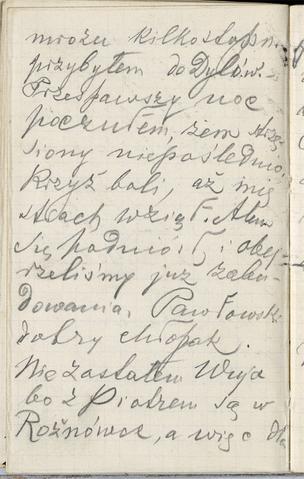 mrozu kilkostopn.
przybyłem do Dylów.-
Przespawszy noc
poczułem, żem strzę
siony niepoślednio,
Krzyż boli, aż mię
strach wziął. Alem
się podniósł i obej-
rzeliśmy już zabu-
dowania. Pawłowski
dobry chłopak.
Nie zastałem Wuja
bo z Piotrem są w
Rożnówce, a więc dla